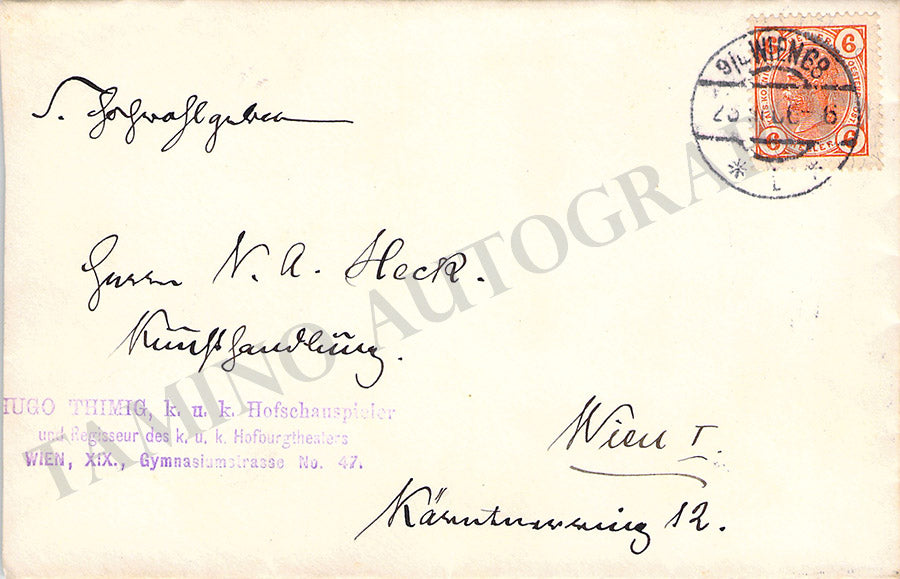 S. Hochwohlgeboren
9/4 WIEN 68
6
6
6
6
Herrn V. A. Heck.
Kunsthandlung.
HUGO THIMIG, k. u. k. Hofschauspieler
und Regisseur des k. u. k. Hofburgtheaters
WIEN, XIX., Gymnasiumstrasse No. 47.
Wien I.
Kärntnerring 12.
TAMINO AUTOGRAPHS